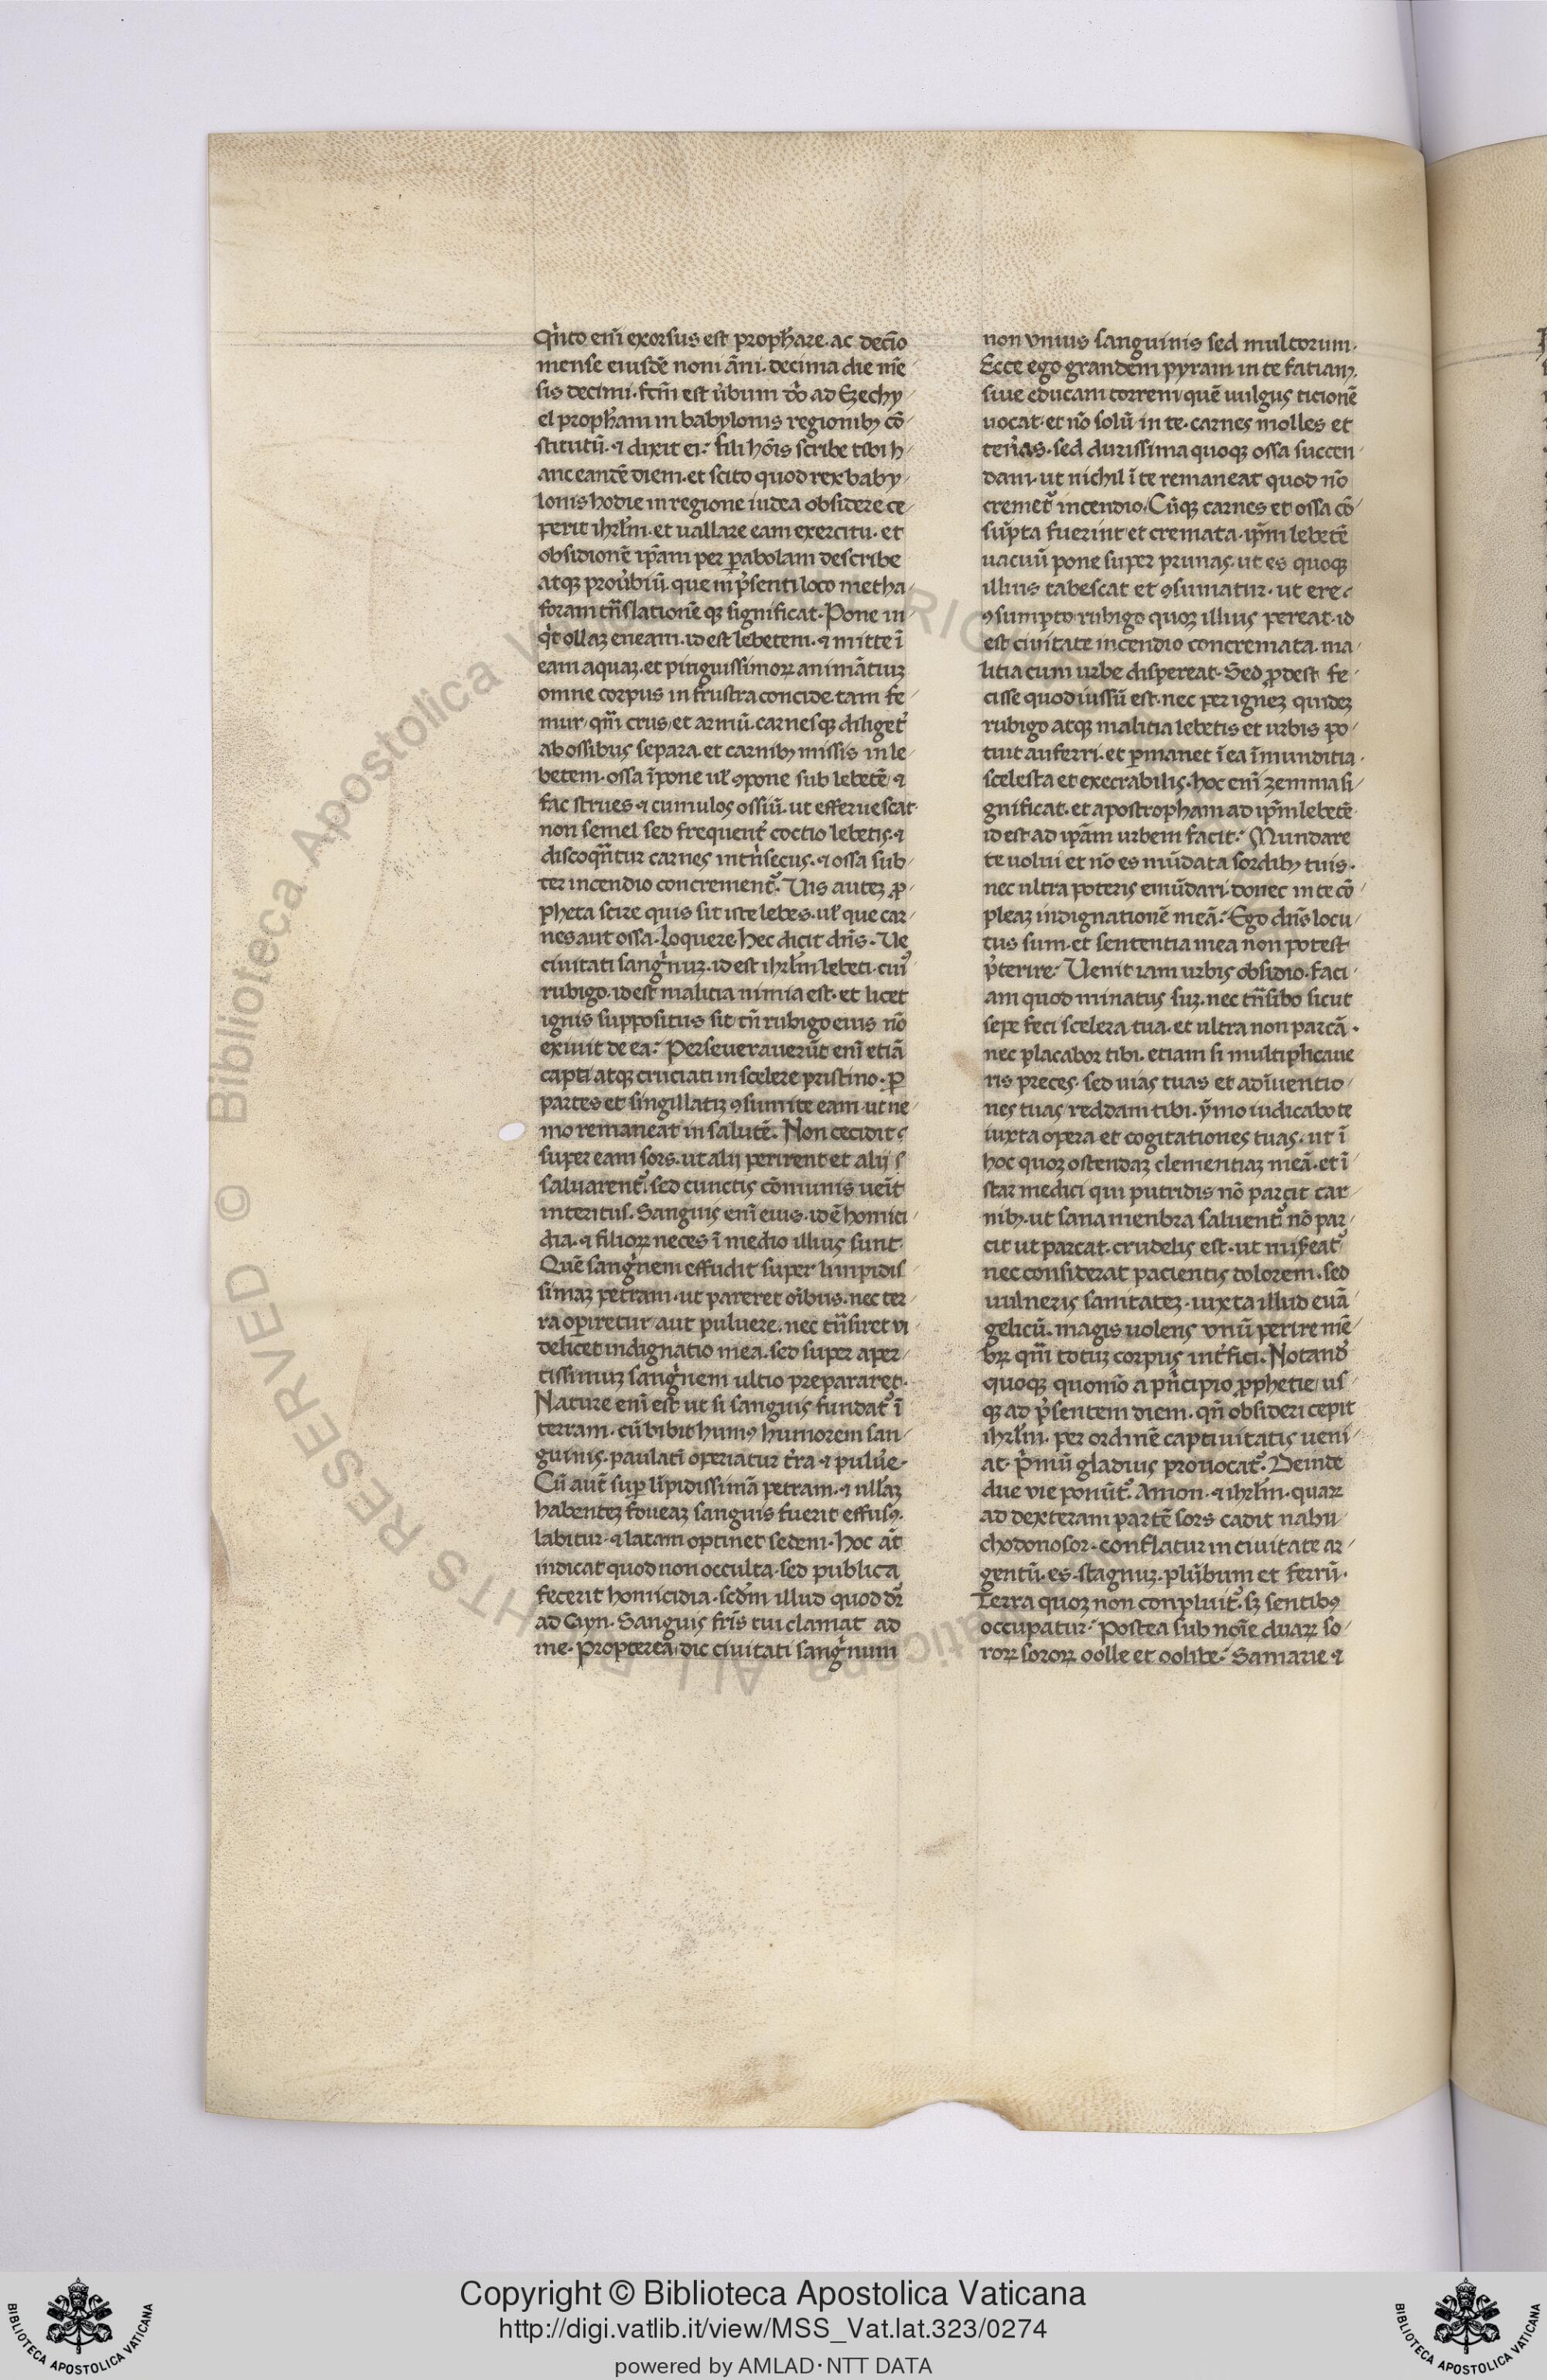 Qͥnto eni᷃ exorsus est propħare. ac deci᷃o
mense eiusdē noni āni. decima die mē
sis decimi. fcm̄ est u̓bum dn̄i ad Ezechy
el propħam in babylonis regionibꝫ cō
stitutū. ⁊ dixit ei: fili hoīs scribe tibi h
anc eandē diem. et scito quod rex baby
lonis hodie in regione iudea obsidere ce
perit ihrl̄m. et uallare eam exercitu. et
obsidionē ip̄am per ꝑabolam describe
atqꝫ prou̓biū. que in p̓senti loco metha
foram tn̄slationē qꝫ significat. Pone in
qͥt ollaꝫ eneam. id est lebetem. ⁊ mitte ī
eam aquaꝫ. et pinguissimoꝝ animātiuꝫ
omne corpus in frustra concide. tam fe
mur qm̄ crus et armū. carnesqꝫ diliget᷑
ab ossibus separa. et carnibꝫ missis in le
betem. ossa īpone ul̓ ꝯpone sub lebetē ⁊
fac strues ⁊ cumulos ossiū. ut efferuescat
non semel sed frequent᷑ coctio lebetis. ⁊
discoqn̄tur carnes intn̓secus. ⁊ ossa sub
ter incendio concrement᷑. Vis auteꝫ ꝓ
pheta scire quis sit iste lebes. ul̓ que car
nes aut ossa. loquere. hec dicit dn̄s. Ve
ciuitati sangͥnuꝫ. id est ihrl̄m lebeti. cui᷒
rubigo. id est malitia nimia est. et licet
ignis suppositus sit tn̄ rubigo eius nō
exiuit de ea: Perseuerauerūt eni᷃ etiā
capti atqꝫ cruciati in scelere pristino. ꝑ
partes et singillatiꝫ ꝯsumite eam ut ne
mo remaneat in salutē. Non cecidit
super eam sors. ut alij perirent et alij s
saluarent᷑. sed cunctis cōmunis uēit
interitus. Sanguis eni᷃ eius. id ē homici
dia. ⁊ filioꝝ neces ī medio illius sunt
Quē sangͥnem effudit super limpidis
simaꝫ petram. ut pareret oībus. nec ter
ra operiretur aut puluere. nec tn̄siret vi
delicet indignatio mea. sed super aper
tissimuꝫ sangͥnem ultio prepararet.
Nature eni᷃ est ut si sanguis fundat᷑ ī
terram. cū bibit humꝰ humorem san
guinis. paulati᷃ operiatur t̓ra ⁊ pulu̓e.
Cū aut̄ suꝑ līpidissimā petram. ⁊ null̓aꝫ
habenteꝫ foueaꝫ sanguis fuerit effusꝰ.
labitur. ⁊ latam optinet sedem. hoc at̄
indicat quod non occulta. sed publica
fecerit homicidia. scd̓m illud quod dr̄
ad Cayn. Sanguis frīs tui clamat ad
me. Propterea dic ciuitati sangͥnum
non vnius sanguinis sed multorum.
Ecce ego grandem pyram in te fatiam.
siue educam torrem quē uulgus ticionē
uocat. et nō solū in te. carnes molles et
ten̓as. sed durissima quoqꝫ ossa succen
dam. ut nichil ī te remaneat quod nō
cremet᷑ incendio. Cūqꝫ carnes et ossa cō
sūpta fuerint et cremata. ip̄m lebetē
uacuū pone super prunas. ut es quoqꝫ
illius tabescat et ꝯsumatur. ut ere
ꝯsumpto rubigo quoqꝫ illius pereat. id
est ciuitate incendio concremata. ma
litia cum urbe dispereat. Sed ꝓdest fe
cisse quod iussū est. nec per igneꝫ quideꝫ
rubigo atqꝫ malitia lebetis et urbis po
tuit auferri. et ꝑmanet ī ea īmunditia
scelesta et execrabilis. hoc eni᷃ zemma si
gnificat. et apostropham ad ip̄m lebetē
id est ad ip̄am urbem facit: Mundare
te uolui et nō es mūdata sordibꝫ tuis.
nec ultra poteris emūdari. donec in te cō
pleaꝫ indignationē meā: Ego dn̄s locu
tus sum. et sententia mea non potest
p̓terire: Venit iam urbis obsidio. faci
am quod minatus suꝫ. nec tn̄sibo sicut
sepe feci scelera tua. et ultra non parcā.
nec placabor tibi. etiam si multiplicaue
ris preces. sed uias tuas et adīuentio
nes tuas reddam tibi. ymo iudicabo te
iuxta opera et cogitationes tuas. ut ī
hoc quoqꝫ ostendaꝫ clementiaꝫ meā. et ī
star medici qui putridis nō parcit car
nibꝫ. ut sana menbra saluent᷑ nō par
cit ut parcat. crudelis est. ut mis̓eat᷑
nec considerat pacientis dolorem. sed
uulneris sanitateꝫ. iuxta illud euā
gelicū. magis uolens vnū perire mē
bꝝ qm̄ totuꝫ corpus int̓fici. Notand᷒
quoqꝫ quomō a pn̓cipio ꝓphetie us
qꝫ ad p̓sentem diem. qn̄ obsideri cepit
ihrl̄m. per ordinē captiuitatis ueni
at. pͥmū gladius prouocat᷑. Deinde
due vie ponūt᷑. Amon. ⁊ ihrl̄m. quaꝝ
ad dexteram partē sors cadit nabu
chodonosor. conflatur in ciuitate ar
gentū. es. stagnuꝫ. plūbum et ferrū.
Terra quoqꝫ non conpluit᷑. sꝫ sentibꝰ
occupatur: Postea sub noīe duaꝝ so
roꝝ soroꝝ oolle et oolibe: Samarie ⁊
Copyright © Biblioteca Apostolica Vaticana
http://digi.vatlib.it/view/MSS_Vat.lat.323/0274
powered by AMLAD·NTT DATA
BIBLIOTECA APOSTOLICA VATICANA
BIBLIOTECA APOSTOLICA VATICANA